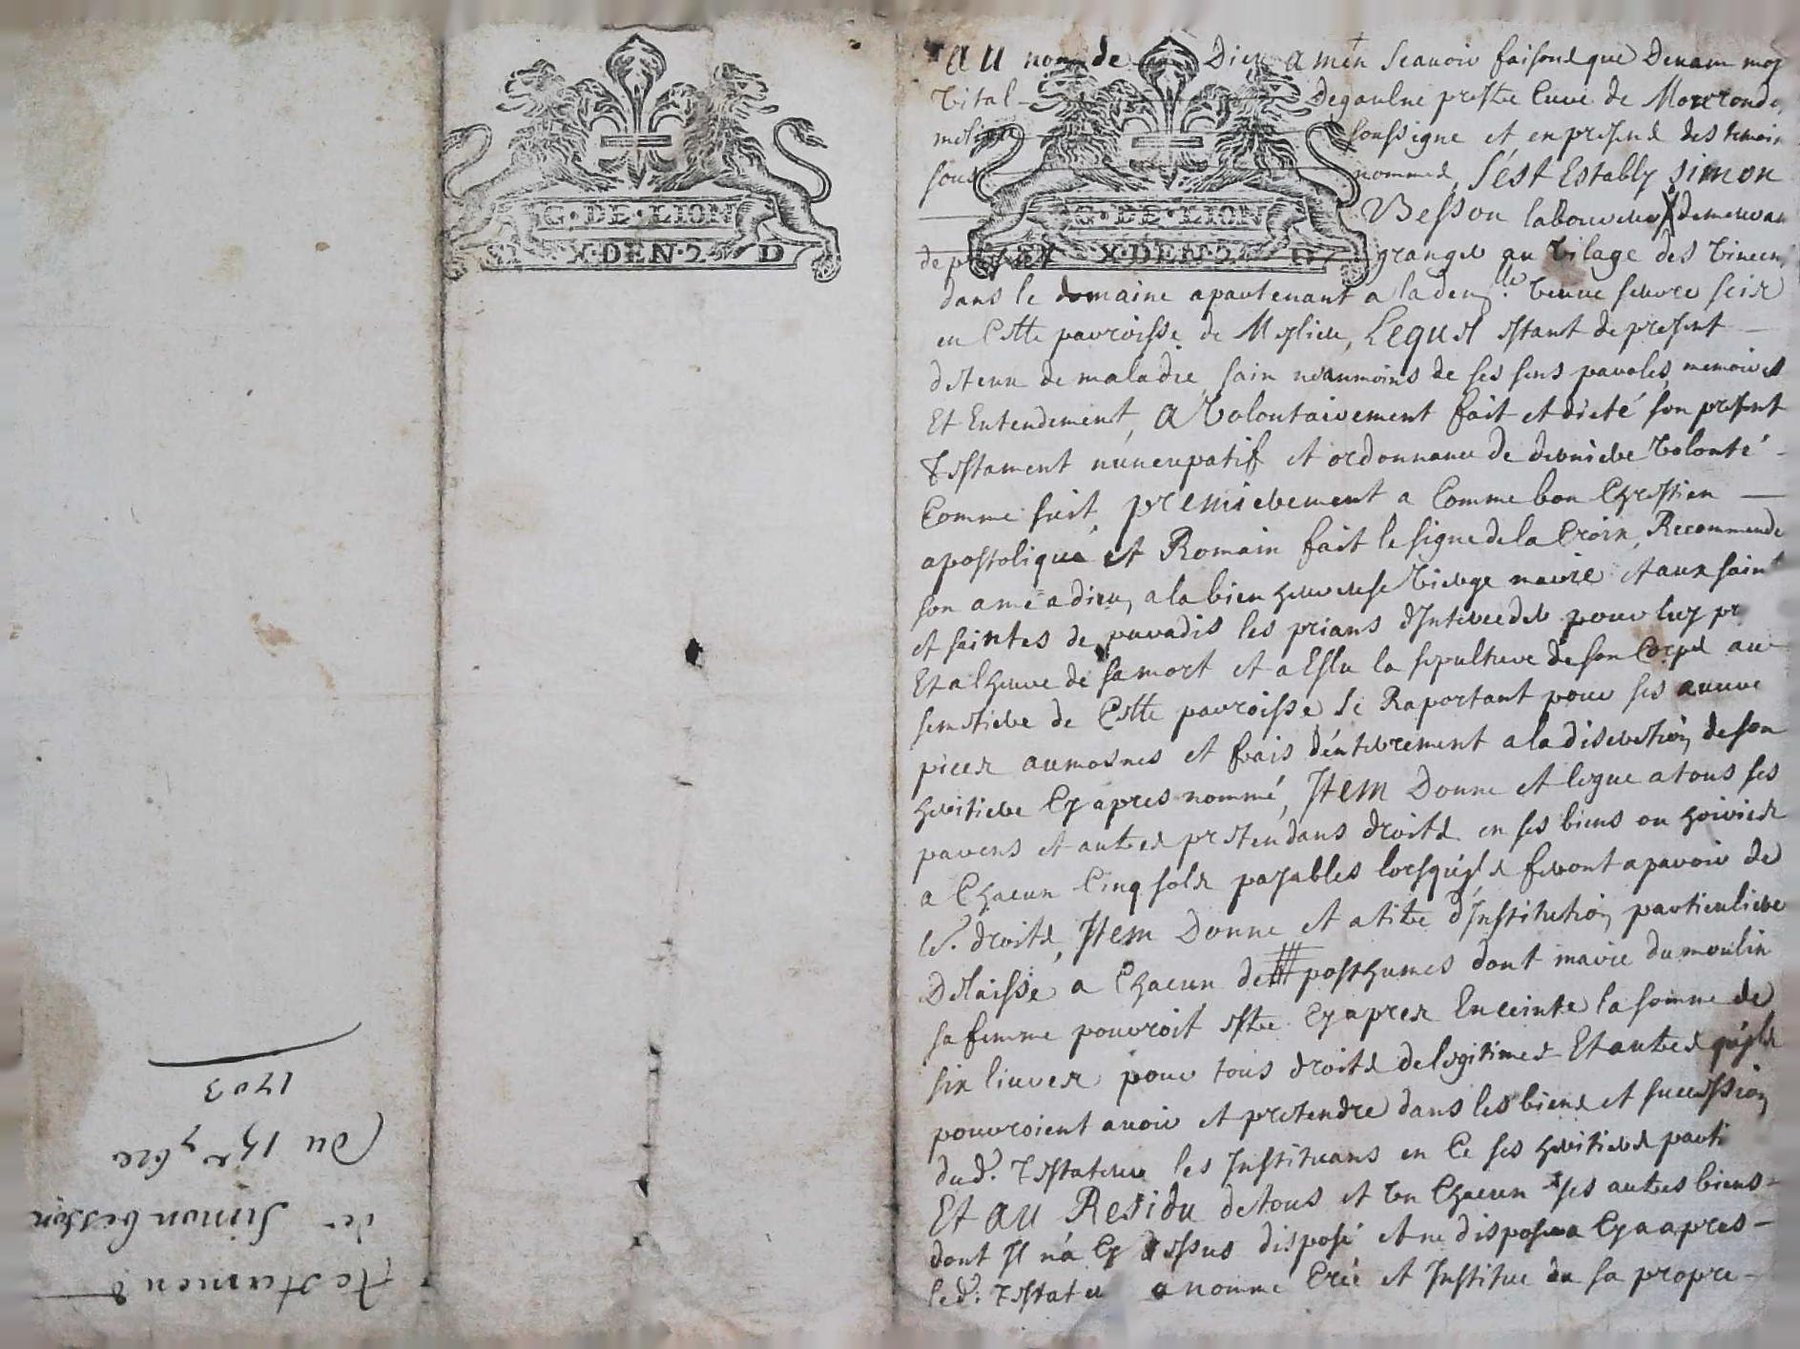 G·DE·LION
X·DEN·2 D
G·DE·LION
X·DEN·2
Au nom de Dieu amen Scauoir faisons que Deuant moy
Vital Degaulne prestre Curé de Mornand
soussigne et en presence des temoin
sous nommes S'est Estably simon
Besson laboureur demeuran
granges au vilage des
dans le domaine apartenant a la dem.lle veuue
en Cette parroisse de Meslieu, Lequel estant de present
detenu de maladie sain neaumoins de ses sens paroles memoires
Et Entendement, a Volontairement fait et dicté son present
Testament nuncupatif et ordonnance de derniere Volonté
Comme suit, premierement a Comme bon Chrestien
apostolique et Romain fait le signe de la Croix, Recommende
son ame a dieu, a la bien heureuse Vierge marie et aux saint
et saintes de paradis les prians d'Interceder pour luy
Et a l'heure de sa mort et a Eslu la sepulture de son Corps au
semetiere de Cette parroisse se Raportant pour ses
pies aumosnes et frais d'enterrement a la discretion de son
heritiere Cy apres nommé, Item Donne et legue a tous ses
parens et autres pretendans droits en ses biens ou hoirie
a Chacun Cinq sols payables lorsqu'jls feront aparoir de
droits, Item Donne et a titre d'Institution particuliere
Delaisse a Chacun de posthumes dont marie du moulin
sa femme pouroit estre Cy apres Enceinte la somme de
six liures pour tous droits de legitimes Et autres qu'jls
pouroient auoir et pretendre dans les biens et succession
dud. Testateur les Instituans en Ce ses heritiers parti
Et au Residu de tous et Un Chacun ses autres biens
dont Jl n'a Cy dessus disposé et ne disposera Cy apres
led. Testateu a nomme Créé et Institue de sa propre
Testament
de Simon besson
du 15e 7bre
1703